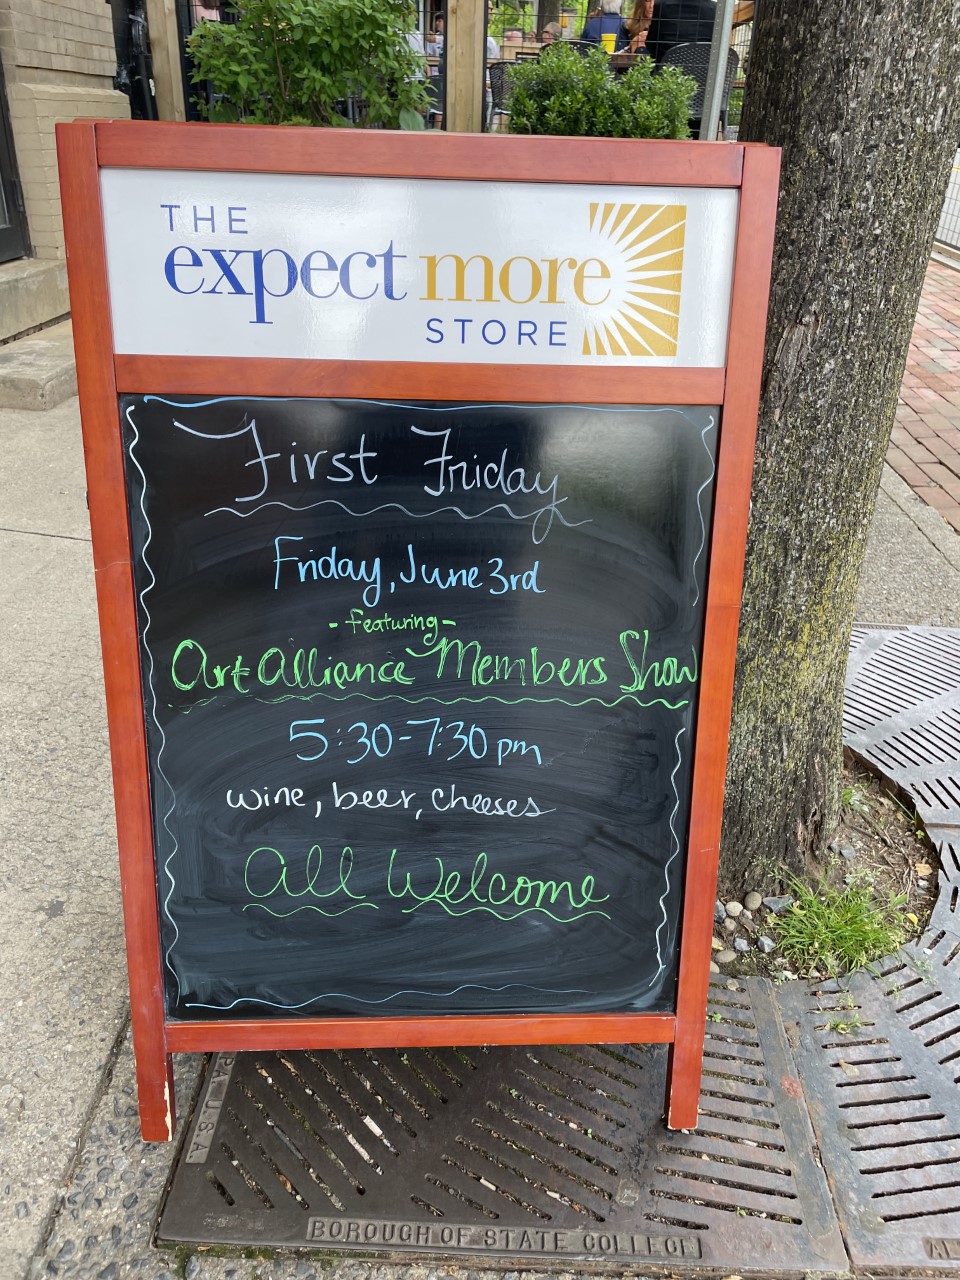 THE
expect more
STORE
First Friday
Friday, June 3rd
- featuring -
Art Alliance Members Show
5:30-7:30 pm
wine, beer, cheeses
All Welcome
BOROUGH OF STATE COLLEGE